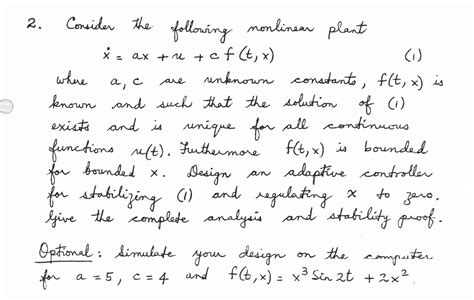 2. Consider the following nonlinear plant
ẋ = ax + u + c f(t,x) (1)
where a, c are unknown constants, f(t,x) is
known and such that the solution of (1)
exists and is unique for all continuous
functions u(t). Furthermore f(t,x) is bounded
for bounded x. Design an adaptive controller
for stabilizing (1) and regulating x to zero.
Give the complete analysis and stability proof.
Optional: Simulate your design on the computer
for a = 5, c = 4 and f(t,x) = x³ Sin 2t + 2x².